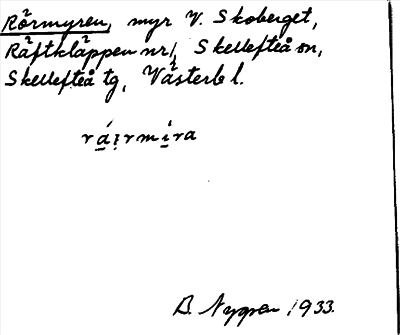 Rörmyren, myr V. Skoberget,
Räftkläppen nr 1, Skellefteå sn,
Skellefteå tg, Västerb l.
rá̱i̯rmí̱ra
B. Nygren 1933.